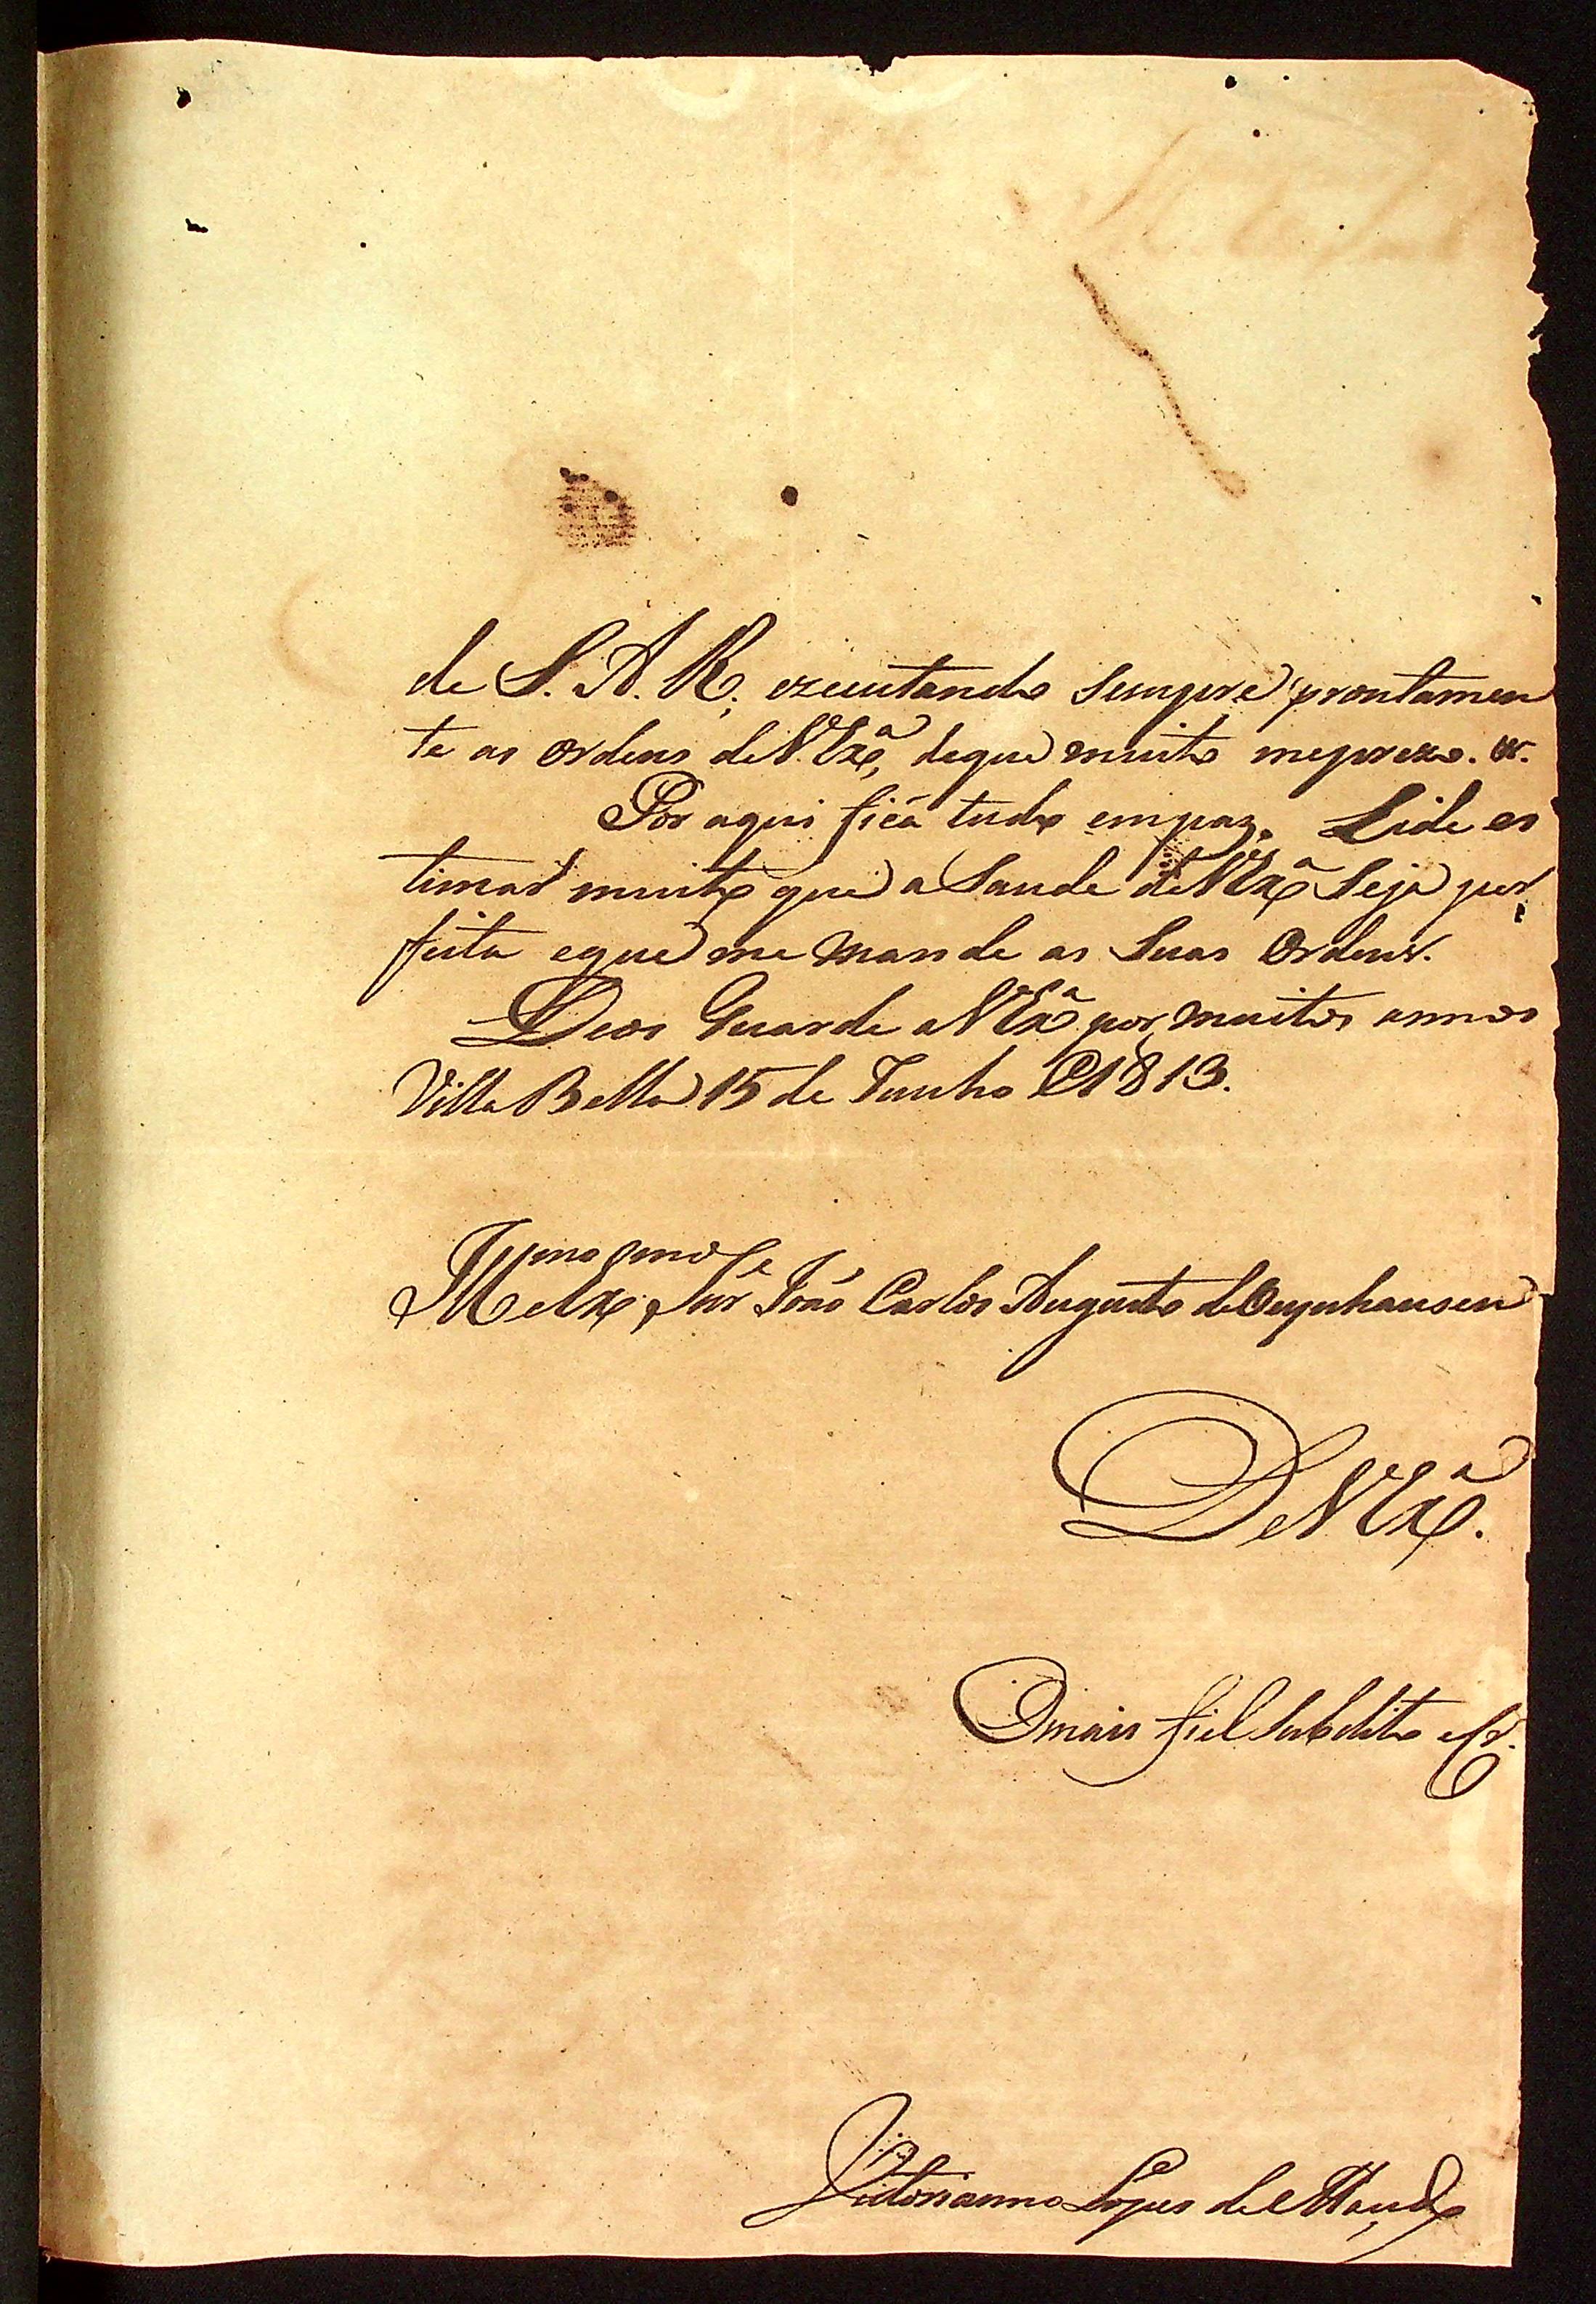 de S. A. R. ezecutando sempre prontamen
te as ordens de V. Exª, deque muito meprezo. &.
Por aqui fica tudo empaz. Hide es
timar muito que a Saude de V Exª Seja per
feita eque me mande as Suas Ordens.
Deos Guarde a V Exª por muitos annos
Villa Bella 15 de Junho de 1813.
Illmo e Exmo Snr João Carlos Augusto de Oeynhausen
De V Exª.
O mais fiel Subdito e Cr.
Victorianno Lopes de Macdo